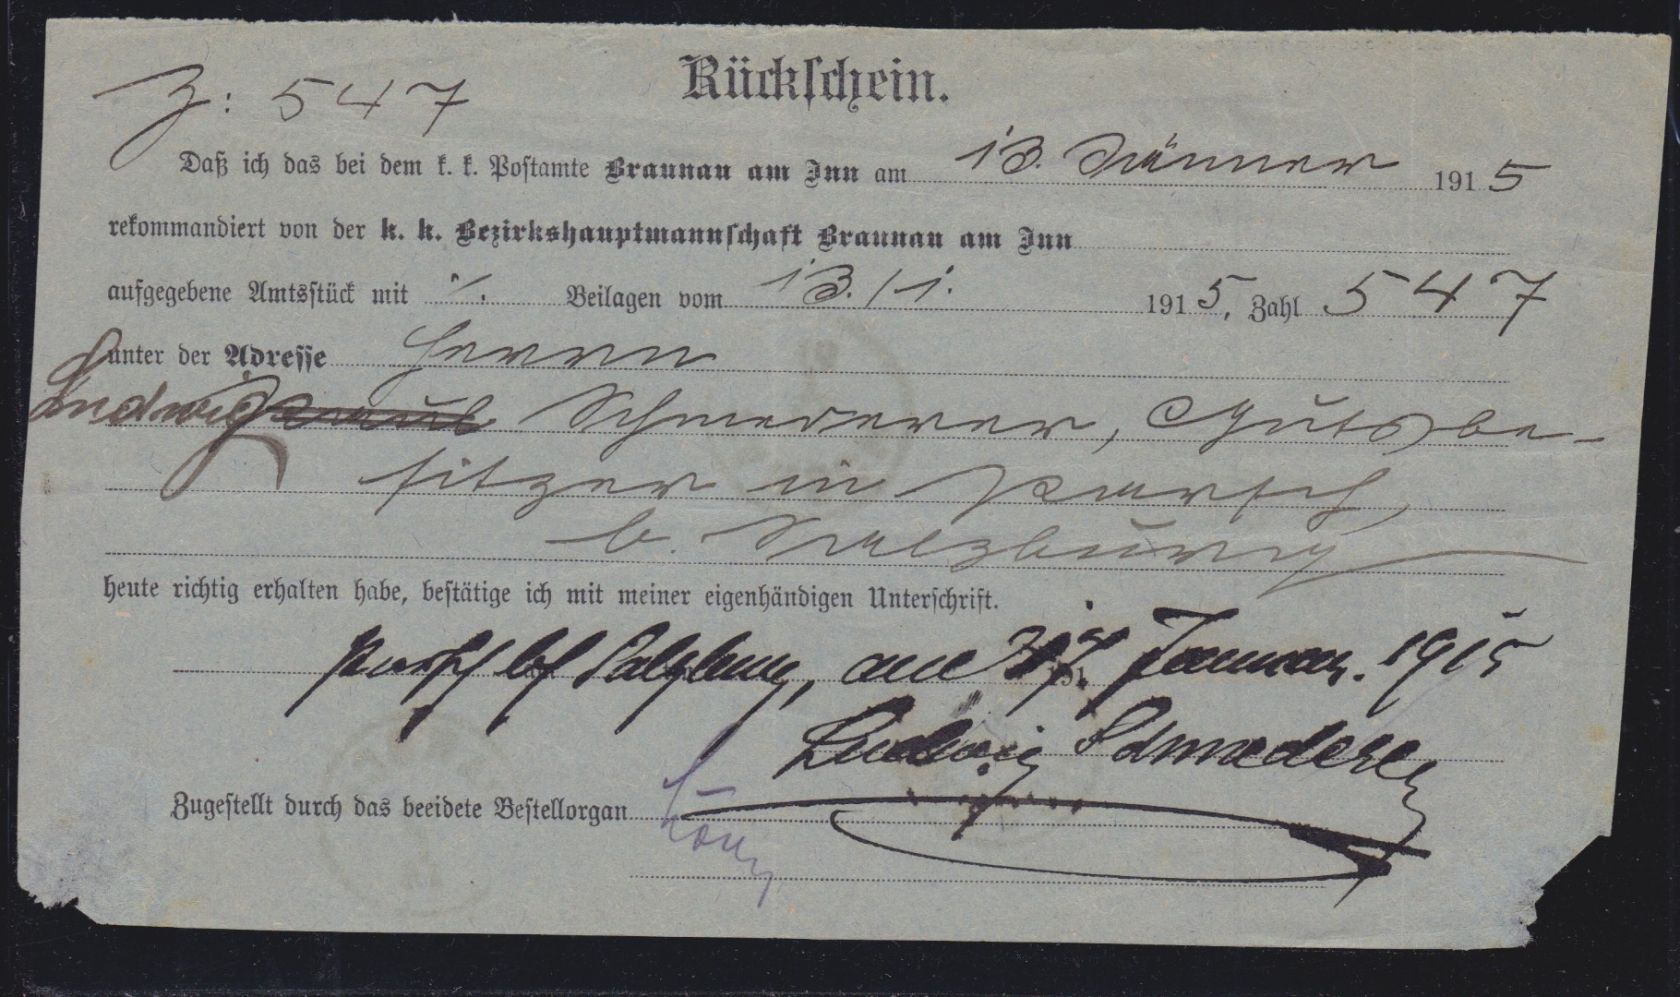 Rückschein.
Z: 547
Daß ich das bei dem k. k. Postamte Braunau am Inn am 13. Jänner 1915
rekommandiert von der k. k. Bezirkshauptmannschaft Braunau am Inn
aufgegebene Amtsstück mit ./. Beilagen vom 13./1. 1915, Zahl 547
unter der Adresse Herrn
Ludwig Schmederer, Gutsbe-
sitzer in Parsch,
b. Salzburg
heute richtig erhalten habe, bestätige ich mit meiner eigenhändigen Unterschrift.
Parsch bei Salzburg, am Januar. 1915
Ludwig Schmederer
Zugestellt durch das beeidete Bestellorgan